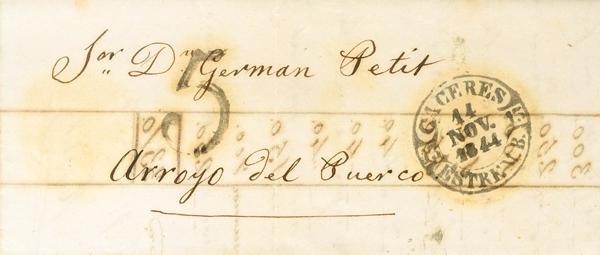 Sor Dn German Petit
3
Arroyo del Puerco
CACERES
14
NOV.
1844
ESTREM. B.